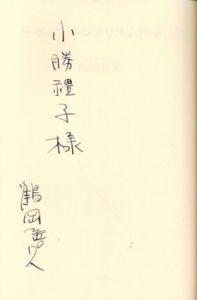 小勝禮子様
鶴岡善久